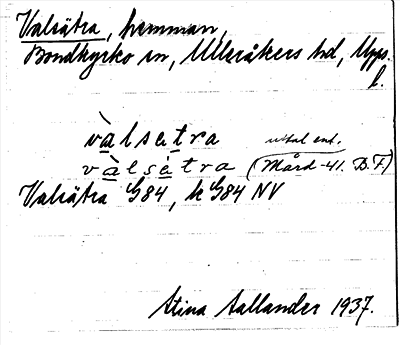 Valsätra, hemman,
Bondkyrko sn, Ulleråkers hd, Upps.
l.
và̱lsetra uttal enl.
và̱lsè̱tra (Mård -41. D.F)
Valsätra G84, k G84 NV
Stina Sallander 1937.